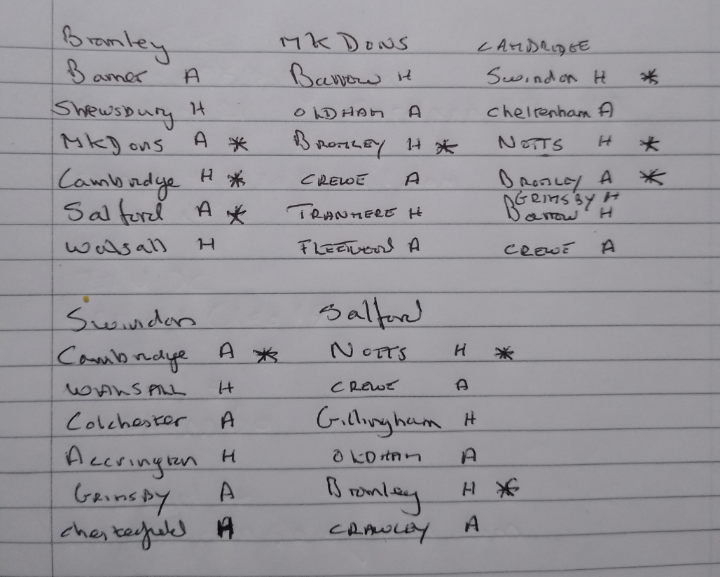 Bromley MK DONS CAMBRIDGE
Barner A Barrow H Swindon H *
Shrewsbury H OLDHAM A Cheltenham A
MKDons A * BROMLEY H * NOTTS H *
Cambridge H * CREWE A BROMLEY A *
GRIMSBY H
Salford A * TRANMERE H Barrow H
Walsall H FLEETWOOD A CREWE A
Swindon Salford
Cambridge A * NOTTS H *
WALSALL H CREWE A
Colchester A Gillingham H
Accrington H OLDHAM A
GRIMSBY A Bromley H *
Chesterfield A CRAWLEY A